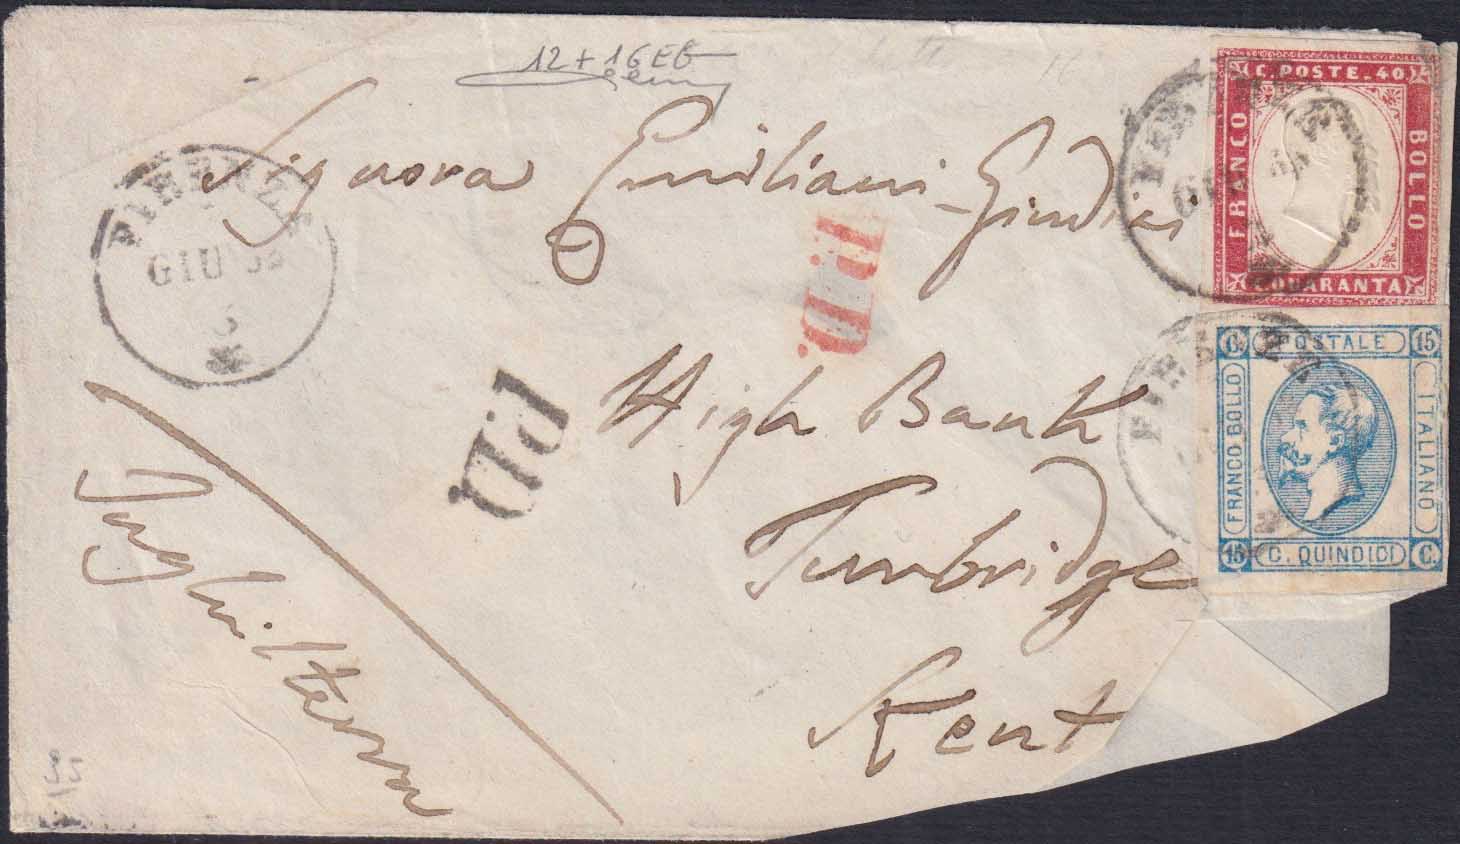 12 + 16 EB
FIRENZE
GIU
Signora Emiliani-Giudici
P.D.
PD
High Bank
Tunbridge
Kent
Inghilterra
C. POSTE. 40
FRANCO
BOLLO
QUARANTA
C. POSTALE 15
FRANCO BOLLO
ITALIANO
15 C. QUINDICI C.
FIRENZE
FIRENZE